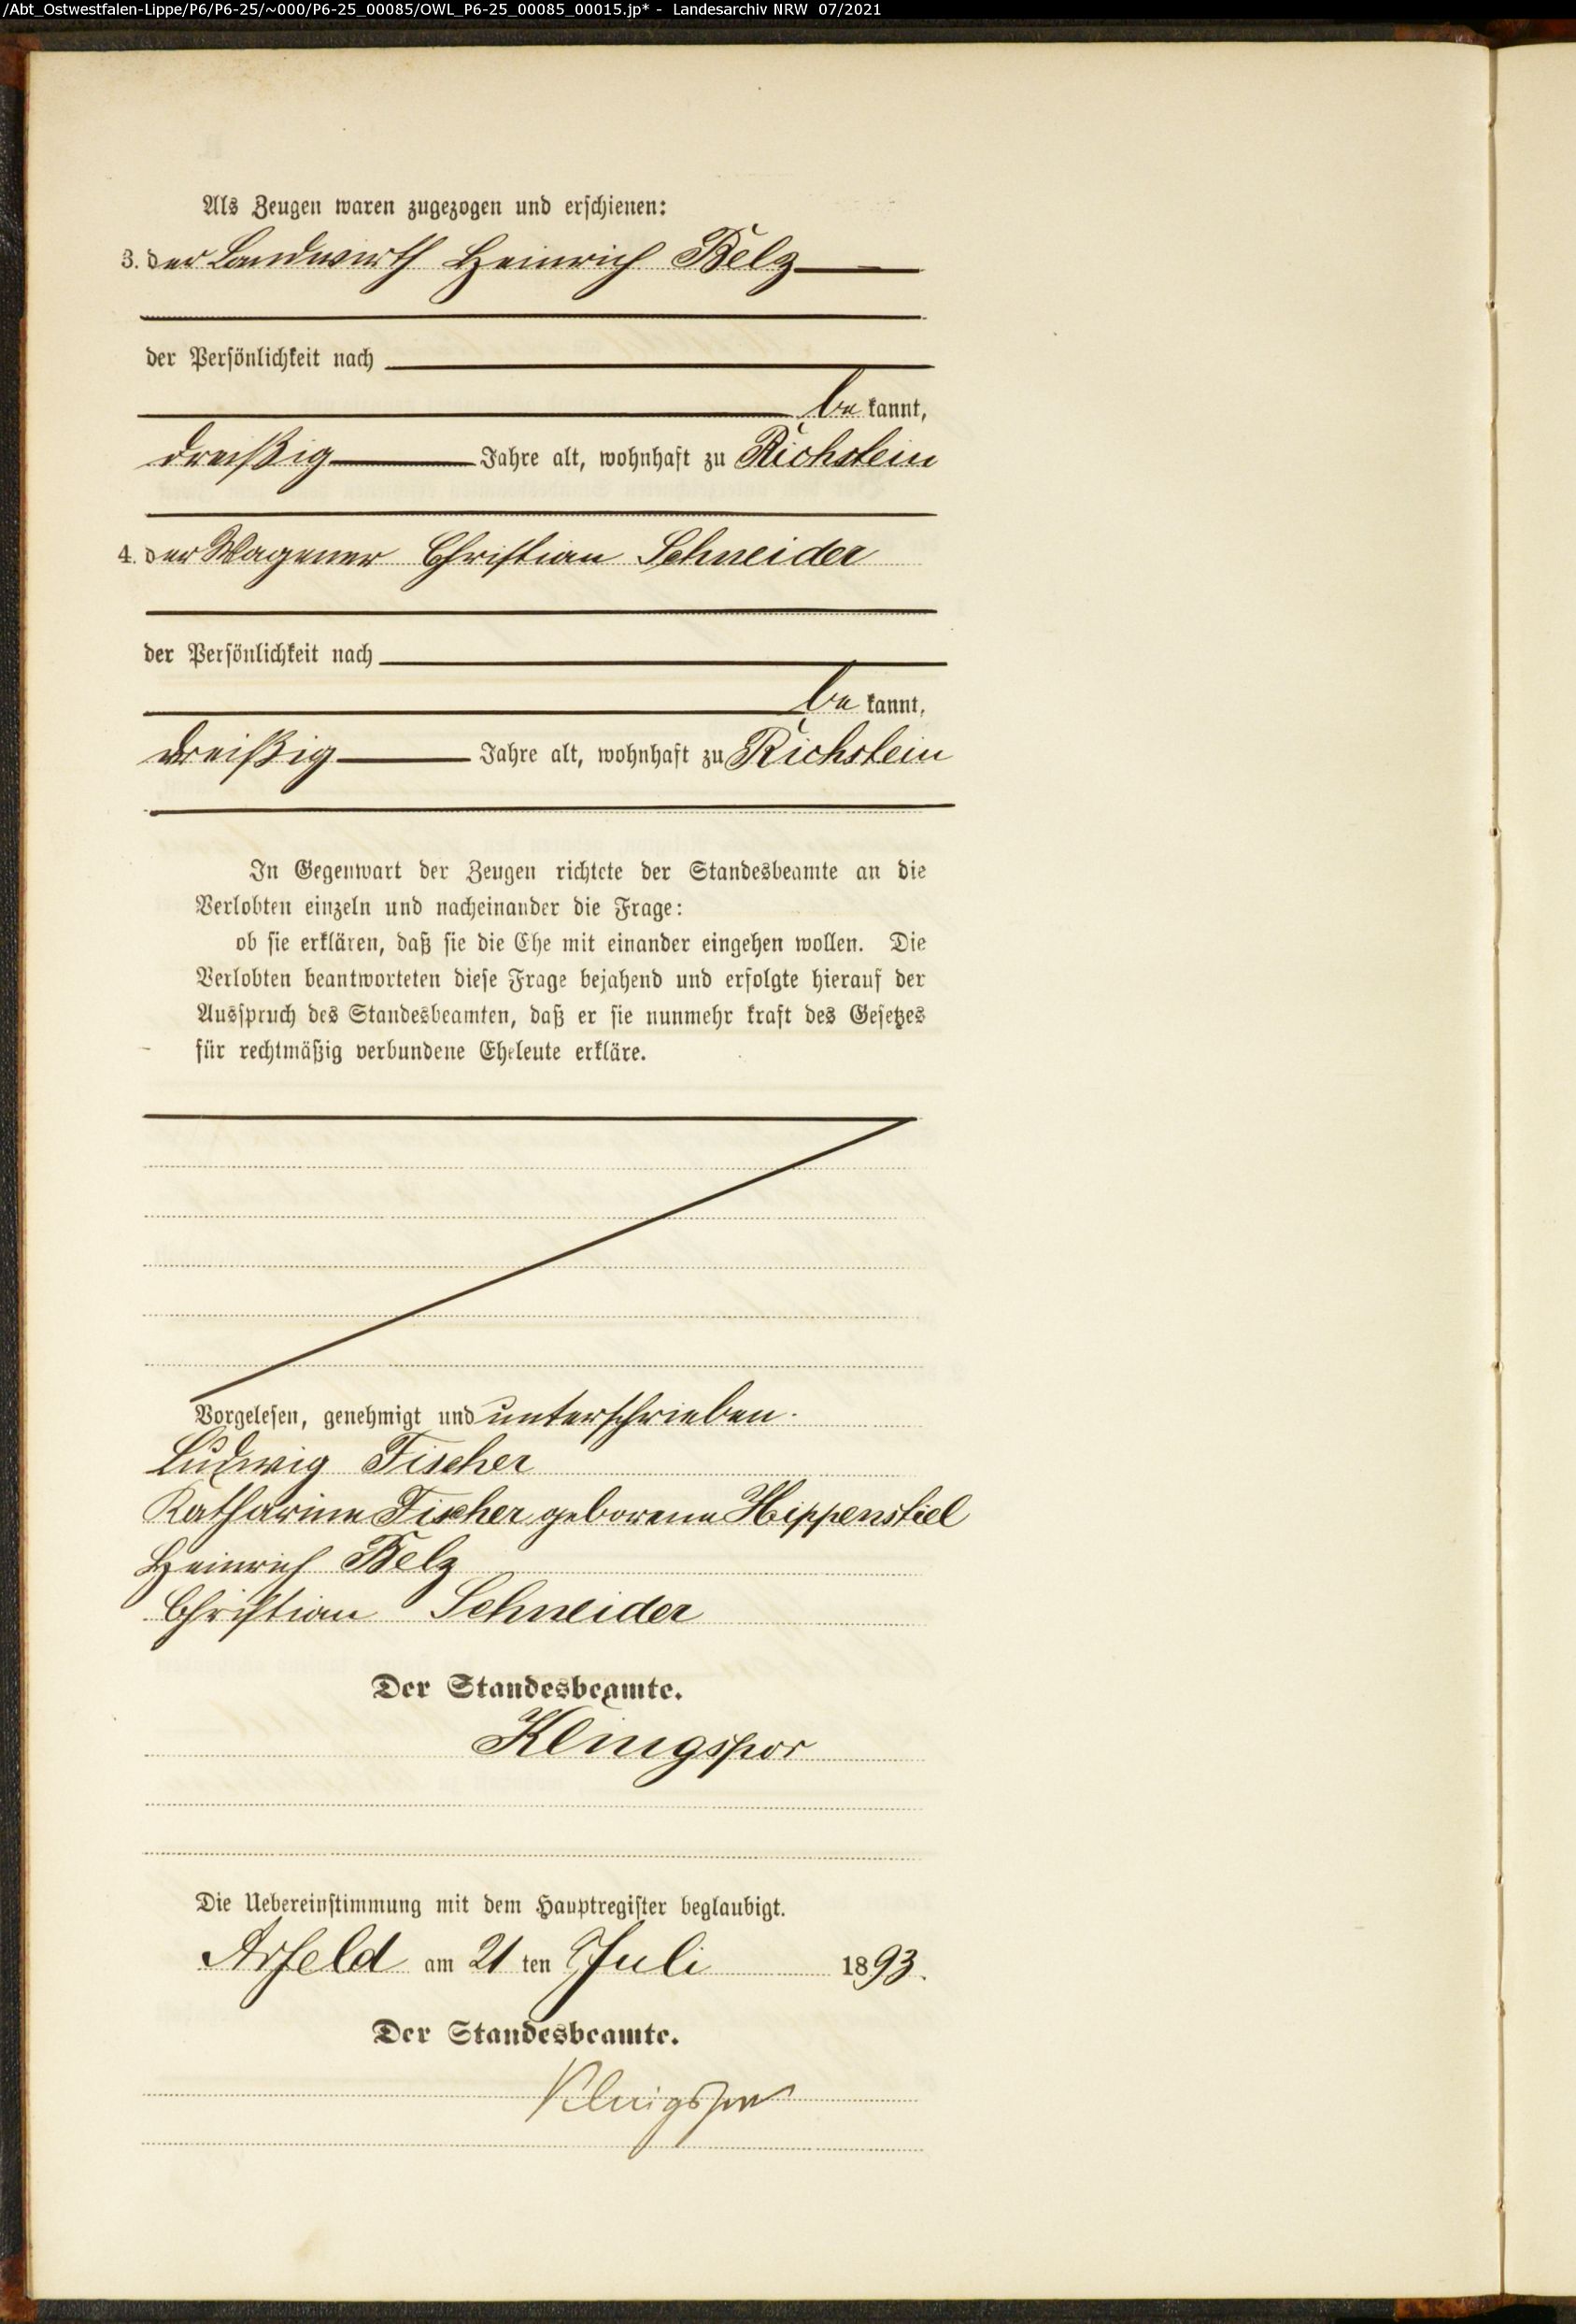 /Abt_Ostwestfalen-Lippe/P6/P6-25/~000/P6-25_00085/OWL_P6-25_00085_00015.jp* - Landesarchiv NRW 07/2021
Als Zeugen waren zugezogen und erschienen:
3. der Landwirth Heinrich Belz
der Persönlichkeit nach
be kannt,
dreißig Jahre alt, wohnhaft zu Richstein
4. der Wagener Christian Schneider
der Persönlichkeit nach
be kannt,
dreißig Jahre alt, wohnhaft zu Richstein
In Gegenwart der Zeugen richtete der Standesbeamte an die
Verlobten einzeln und nacheinander die Frage:
ob sie erklären, daß sie die Ehe mit einander eingehen wollen. Die
Verlobten beantworteten diese Frage bejahend und erfolgte hierauf der
Ausspruch des Standesbeamten, daß er sie nunmehr kraft des Gesetzes
für rechtmäßig verbundene Eheleute erkläre.
Vorgelesen, genehmigt und unterschrieben.
Ludwig Fischer
Katharine Fischer geborene Hippenstiel
Heinrich Belz
Christian Schneider
Der Standesbeamte.
Klingspor
Die Uebereinstimmung mit dem Hauptregister beglaubigt.
Arfeld am 21 ten Juli 1893.
Der Standesbeamte.
Klingspor